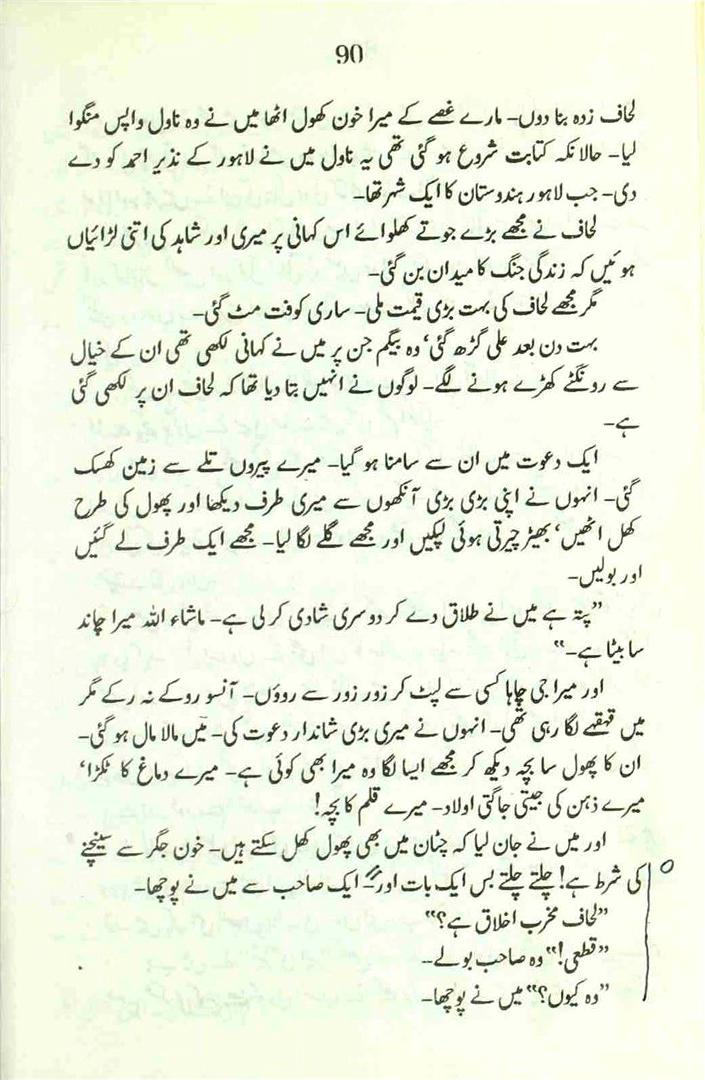 90
لحاف زدہ بنا دوں۔ مارے غصے کے میرا خون کھول اٹھا میں نے وہ ناول واپس منگوا
لیا۔ حالانکہ کتابت شروع ہو گئی تھی یہ ناول میں نے لاہور کے نذیر احمد کو دے
دی۔ جب لاہور ہندوستان کا ایک شہر تھا۔
لحاف نے مجھے بڑے جوتے کھلوائے اس کہانی پر میری اور شاہد کی اتنی لڑائیاں
ہوئیں کہ زندگی جنگ کا میدان بن گئی۔
مگر مجھے لحاف کی بہت بڑی قیمت ملی۔ ساری کوفت مٹ گئی۔
بہت دن بعد علی گڑھ گئی، وہ بیگم جن پر میں نے کہانی لکھی تھی ان کے خیال
سے رونگٹے کھڑے ہونے لگے۔ لوگوں نے انہیں بتا دیا تھا کہ لحاف ان پر لکھی گئی
ہے۔
ایک دعوت میں ان سے سامنا ہو گیا۔ میرے پیروں تلے سے زمین کھسک
گئی۔ انہوں نے اپنی بڑی بڑی آنکھوں سے میری طرف دیکھا اور پھول کی طرح
کھل اٹھیں، بھیڑ چیرتی ہوئی لپکیں اور مجھے گلے لگا لیا۔ مجھے ایک طرف لے گئیں
اور بولیں۔
”پتہ ہے میں نے طلاق دے کر دوسری شادی کر لی ہے۔ ماشاء اللہ میرا چاند
سا بیٹا ہے۔“
اور میرا جی چاہا کسی سے لپٹ کر زور زور سے روؤں۔ آنسو روکے نہ رکے مگر
میں قہقہے لگا رہی تھی۔ انہوں نے میری بڑی شاندار دعوت کی۔ میں مالا مال ہو گئی۔
ان کا پھول سا بچہ دیکھ کر مجھے ایسا لگا وہ میرا بھی کوئی ہے۔ میرے دماغ کا ٹکڑا،
میرے ذہن کی جیتی جاگتی اولاد۔ میرے قلم کا بچہ!
اور میں نے جان لیا کہ چٹان میں بھی پھول کھل سکتے ہیں۔ خون جگر سے سینچنے
کی شرط ہے! چلتے چلتے بس ایک بات اور۔ ایک صاحب سے میں نے پوچھا۔
”لحاف مخرب اخلاق ہے؟“
”قطعی!“ وہ صاحب بولے۔
”وہ کیوں؟“ میں نے پوچھا۔